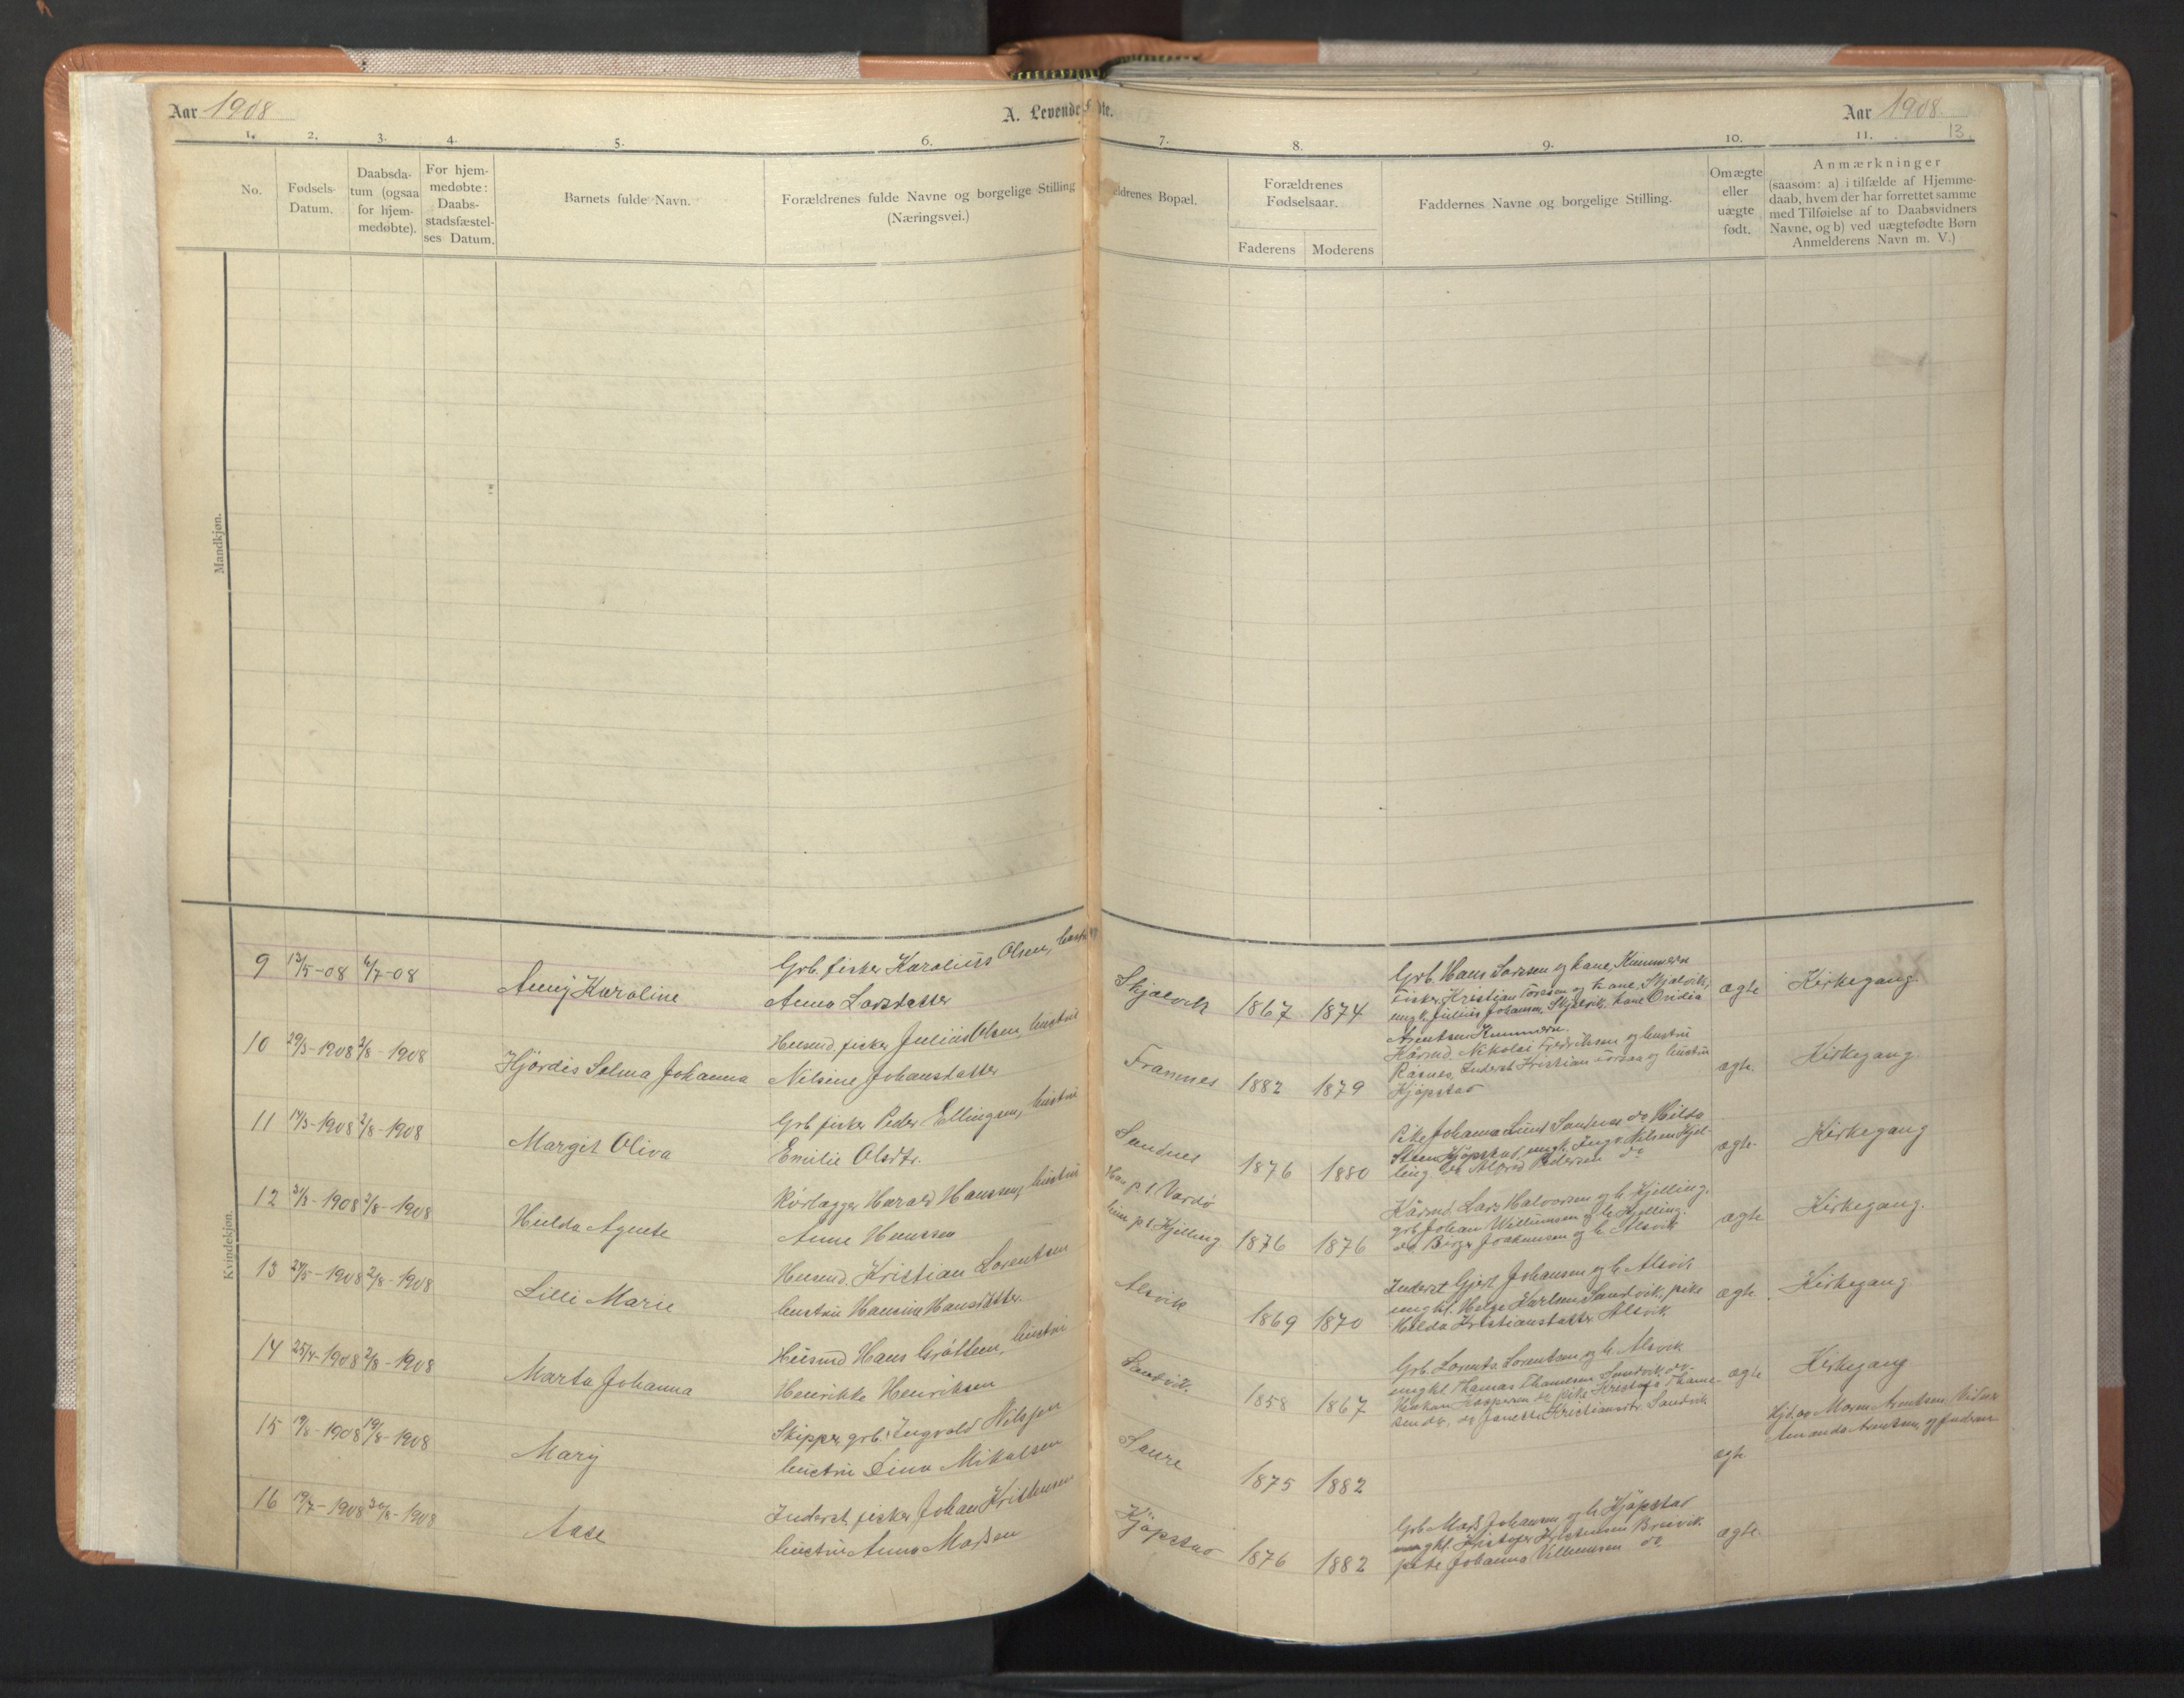 Aar 1908
A. Levende
dte.
Aar 1908.
13.
1. 2. 3. 4. 5. 6. 7. 8. 9. 10. 11.
No.
Fødsels-
Datum.
Daabsda-
tum (ogsaa
for hjem-
medøbte).
For hjem-
medøbte:
Daabs-
stadsfæstel-
ses Datum.
Barnets fulde Navn.
Forældrenes fulde Navne og borgelige Stilling
(Næringsvei.)
ældrenes Bopæl.
Forældrenes
Fødselsaar.
Faderens
Moderens
Faddernes Navne og borgelige Stilling.
Om ægte
eller
uægte
født.
Anmærkninger
(saasom: a) i tilfælde af Hjemme-
daab, hvem der har forrettet samme
med Tilføielse af to Daabsvidners
Navne, og b) ved uægtefødte Børn
Anmelderens Navn m. V.)
Mandkjøn.
Kvindekjøn.
9 13/5-08 6/7-08
Anny Karoline
Grb. fisker Karolius Olsen, hustru
Anna Larsdatter
Skjælvik
1867 1874
Grb. Hans Larssen og kane,
Fisker Kristian Toresen og kane, Skjælvik,
ungk. Julius Johansen, Skjælvik, kane
Arentsen
ægte
Kirkegang.
10 29/3-1908 2/8-1908
Hjørdis Selma Johanna
Husmd. fisker Julius Olsen, hustru
Nilsine Johansdatter
Framnes
1882 1879
Kårmd. Nikolai Fredriksen og hustru
Råsnes, Inderst Kristian og hustru
Kjøpstad
ægte.
Kirkegang
11 14/3-1908 2/8-1908
Margit Oliva
Grb. fisker Peder Ellingsen, hustru
Emilie Olsdtr.
Sandnes
1876 1880
Pike Johanna Lind Sandnes do Hilda
Steen Kjøpstad, ungk. Ingv. Nilsen Kjel-
ling. do Alfred Pedersen do
ægte.
Kirkegang
12 31/3-1908 2/8-1908
Hulda Agnete
Rørlægger Harald Hanssen, hustru
Anne Hanssen
Han p.t. Vardø
hun p.t. Kjelling
1876 1876
Kårmd Lars Halvorsen og h. Kjelling.
grb. Johan Willumsen og h. Kjelling.
do Birger Joakimsen og h. Alsvik
ægte
Kirkegang.
13 24/5-1908 2/8-1908
Lilli Marie
Husmd. Kristian Lorentsen
hustru Hansine Hansdatter.
Alsvik
1869 1870
Inderst Gjert Johansen og h. Alsvik
ungkl. Helge Karlsen Sandvik, pike
Hilda Kristiansdatter Alsvik
ægte
Kirkegang
14 25/4-1908 2/8-1908
Marta Johanna
Husmd Hans Gråtteen, hustru
Henrikke Henriksen
Sandvik.
1858 1867
Grb. Lorents Lorentsen og h. Alsvik
ungkl. Thomas Thomesen Sandvik do.
Håkon Kaspersen do pike
sen do. do Janetta Kristiansdtr Sandvik
ægte
Kirkegang
15 19/8-1908 19/8-1908
Mary
Skipper, grb. Ingvald Nilsjen
hustru Lina Mikalsen
Saure
1875 1882
ægte
Hjd. av Maren Arentsen,
Amanda Arentsen og
16 19/7-1908 30/8-1908
Aase
Inderst, fisker Johan Kristensen
hustru Anna Madsen
Kjøpstad
1876 1882
Grb. Mads Johansen og h. Kjøpstad
ungkl. Kristofer Kristensen Breivik
pike Johanna Villumsen do
ægte.